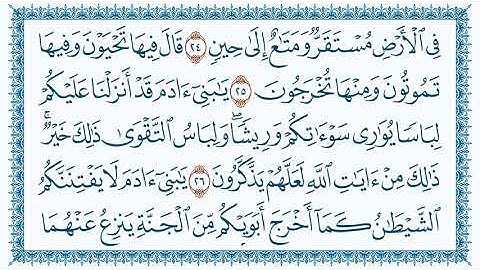 فِي الْأَرْضِ مُسْتَقَرٌّ وَمَتَاعٌ إِلَىٰ حِينٍ ٢٤ قَالَ فِيهَا تَحْيَوْنَ وَفِيهَا
تَمُوتُونَ وَمِنْهَا تُخْرَجُونَ ٢٥ يَٰبَنِيٓ ءَادَمَ قَدْ أَنزَلْنَا عَلَيْكُمْ
لِبَاسًا يُوَٰرِي سَوْءَٰتِكُمْ وَرِيشًا ۖ وَلِبَاسُ التَّقْوَىٰ ذَٰلِكَ خَيْرٌ ۚ
ذَٰلِكَ مِنْ ءَايَٰتِ اللَّهِ لَعَلَّهُمْ يَذَّكَّرُونَ ٢٦ يَٰبَنِيٓ ءَادَمَ لَا يَفْتِنَنَّكُمُ
الشَّيْطَٰنُ كَمَآ أَخْرَجَ أَبَوَيْكُم مِّنَ الْجَنَّةِ يَنزِعُ عَنْهُمَا